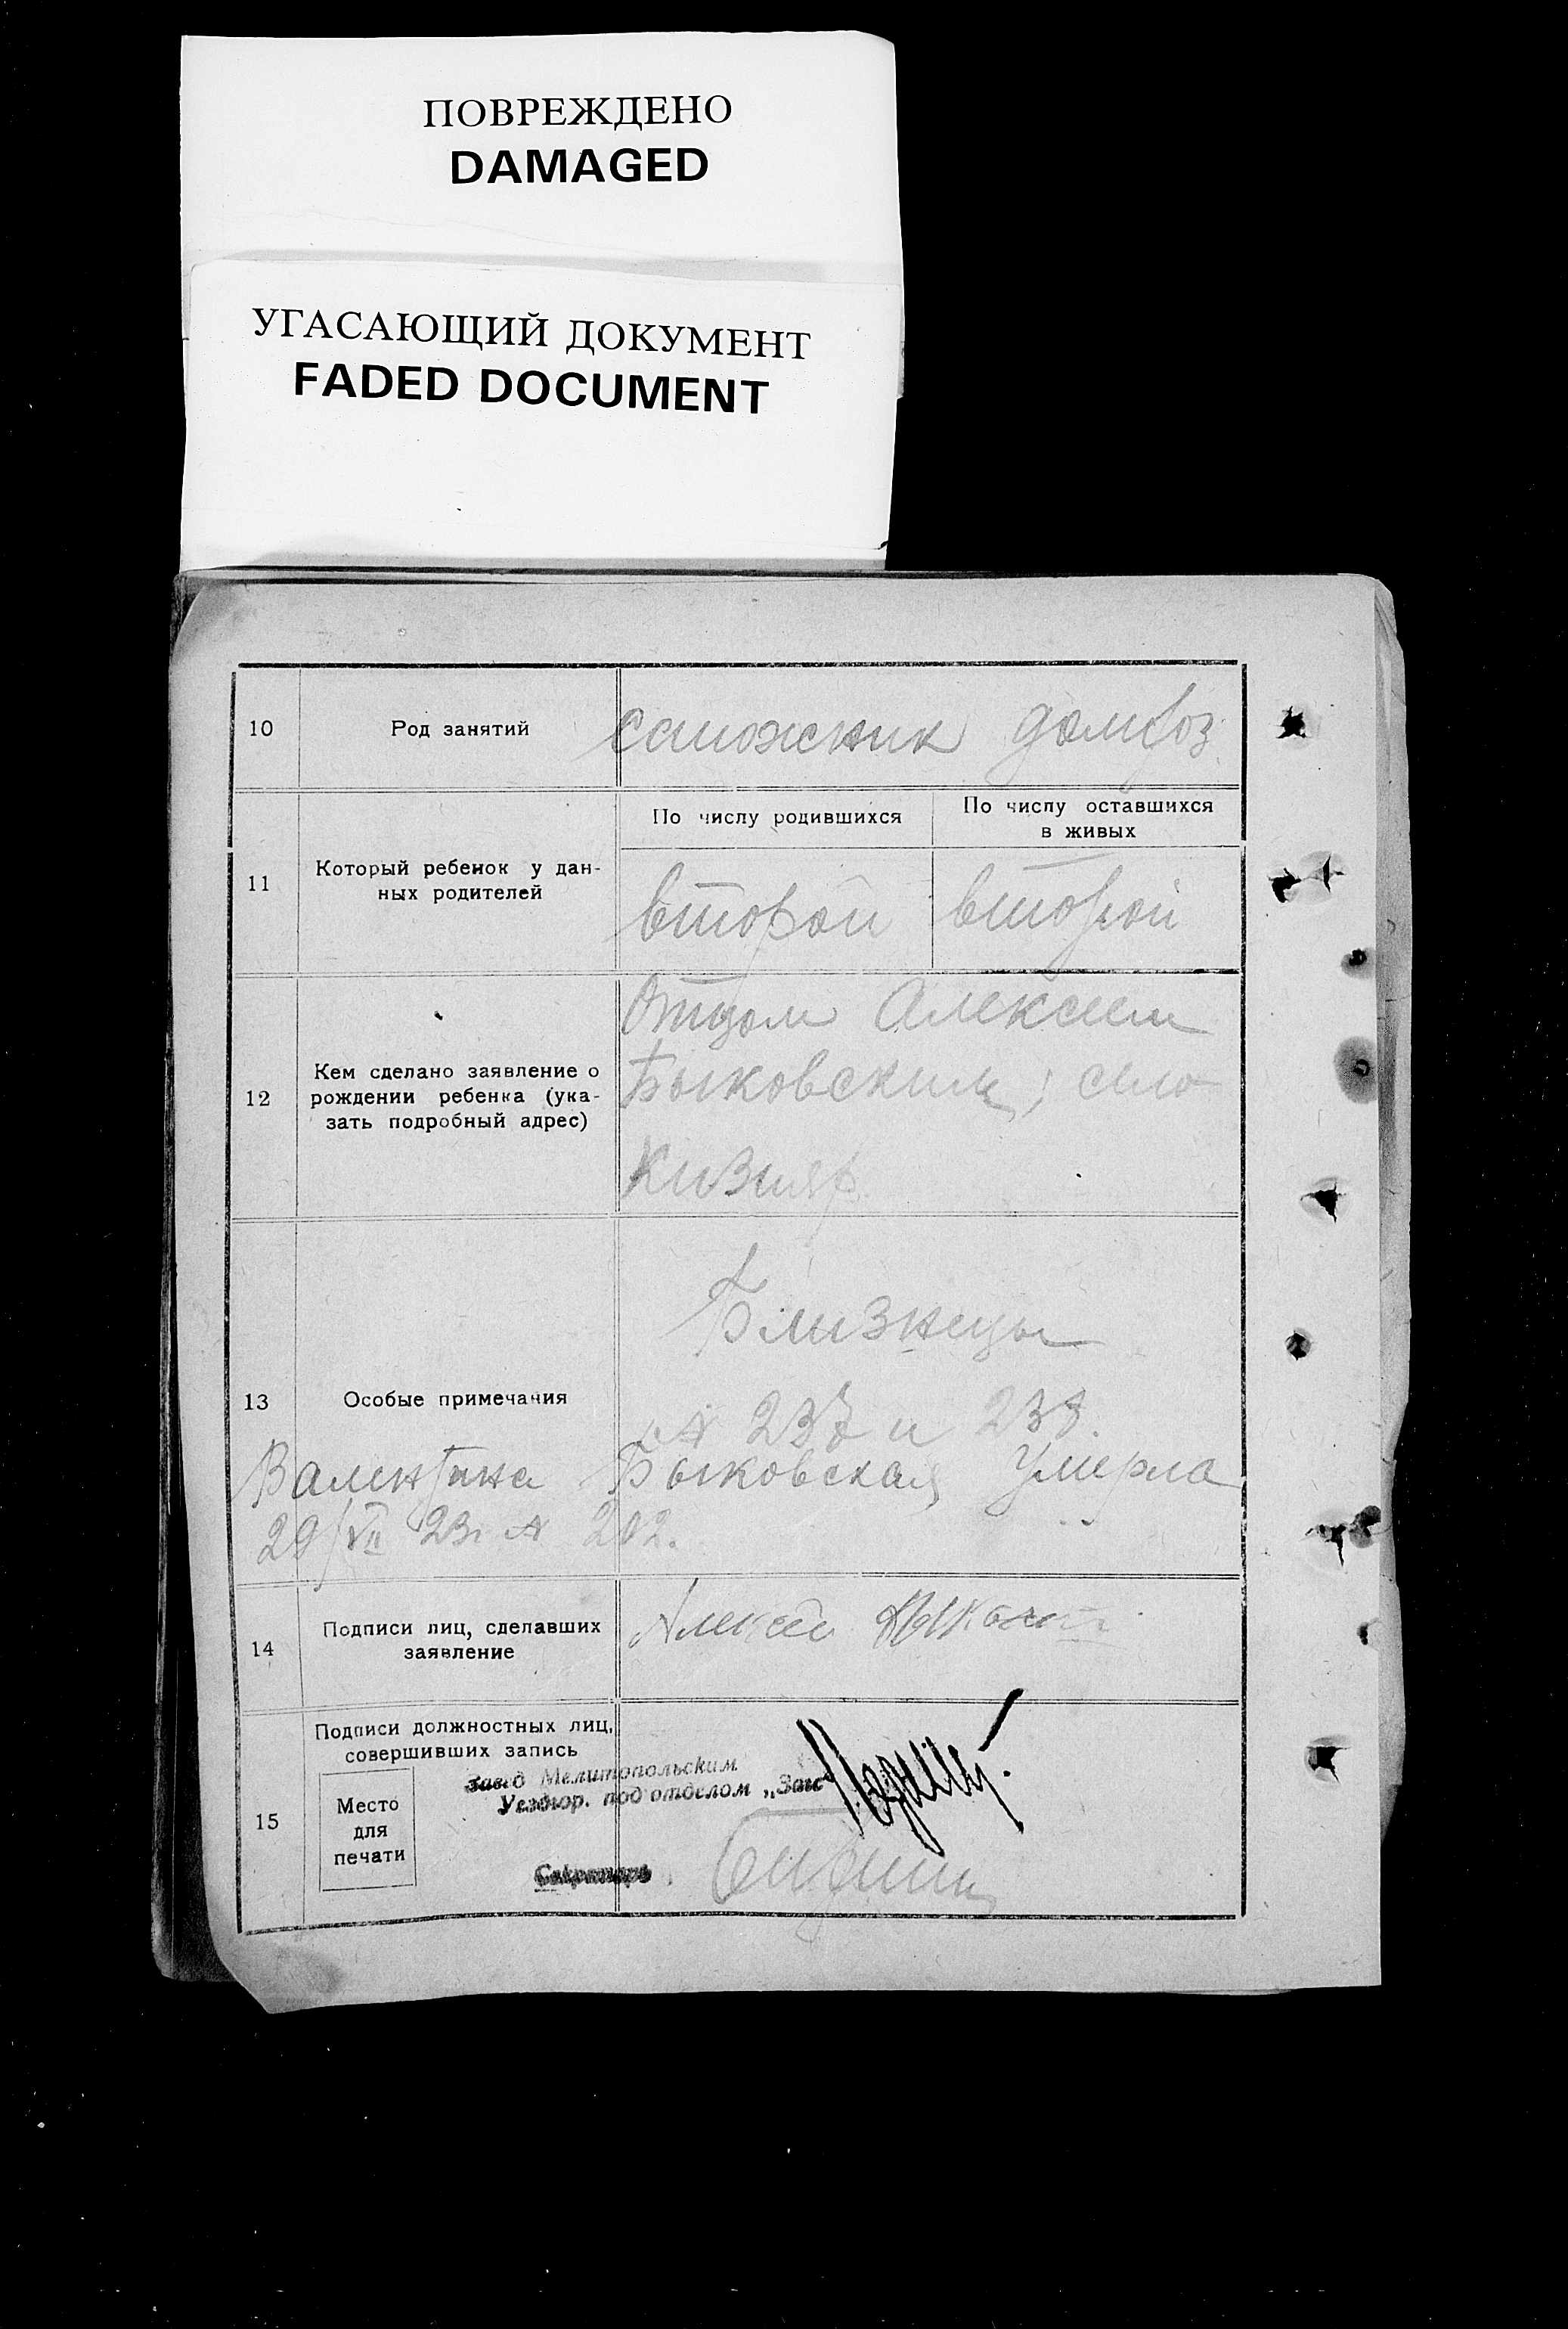 ПОВРЕЖДЕНО
DAMAGED
УГАСАЮЩИЙ ДОКУМЕНТ
FADED DOCUMENT
10
Род занятий
сапожник домхоз.
11
Который ребенок у дан-
ных родителей
По числу родившихся
второй
По числу оставшихся
в живых
второй
12
Кем сделано заявление о
рождении ребенка (ука-
зать подробный адрес)
Отцом Алексеем
Быковским; село
Кизияр
13
Особые примечания
Близнецы
№ 237 и 238.
Валентина Быковская умерла
29/VII 23г № 202.
14
Подписи лиц, сделавших
заявление
Алексей
15
Подписи должностных лиц,
совершивших запись
Место
для
печати
Завед Мелитопольским
Уездгор. подотделом „Загс"
Секретарь